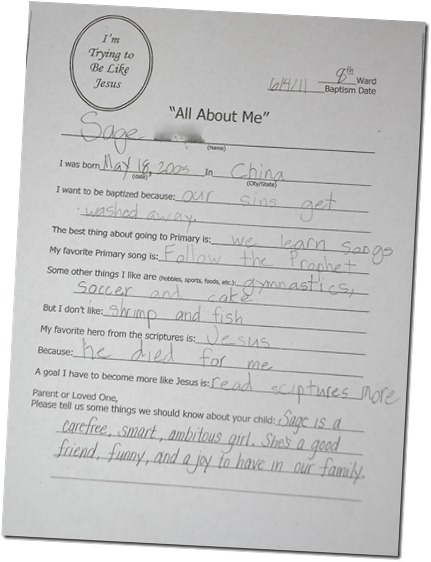 I'm
Trying to
Be Like
Jesus
8th Ward
6/4/11 Baptism Date
"All About Me"
Sage
(Name)
I was born May 18, 2003 in China
(date) (City/State)
I want to be baptized because: our sins get
washed away.
The best thing about going to Primary is: we learn songs
My favorite Primary song is: Follow the Prophet
Some other things I like are (hobbies, sports, foods, etc.): gymnastics,
soccer and cake
But I don't like: shrimp and fish
My favorite hero from the scriptures is: Jesus
Because: he died for me
A goal I have to become more like Jesus is: read sciptures more
Parent or Loved One,
Please tell us some things we should know about your child: Sage is a
carefree, smart, ambitous girl. She's a good
friend, funny, and a joy to have in our family.